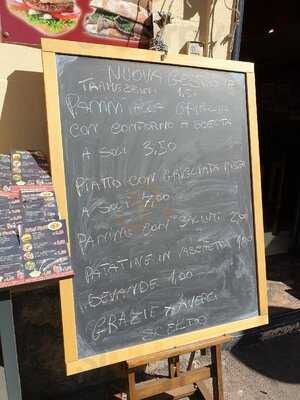 NUOVA GESTIONE
TRAMEZZINI 1,50
PANINI ALLA GRIGLIA
CON CONTORNO A SCELTA
A SOLI 3,50
PIATTO CON GRIGLIATA MISTA
A SOLI 7,00
PANINO CON SALUMI 2,00
PATATINE IN VASCHETTA 1,00
BEVANDE 1,00
GRAZIE X AVERCI
SCELTO